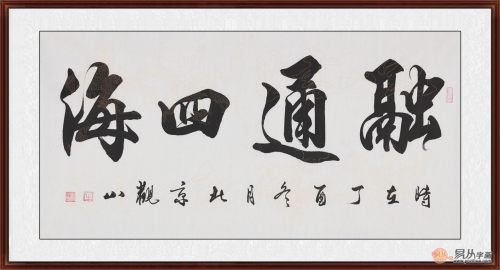 融通四海
時在丁酉冬月北京觀山
易从字畫